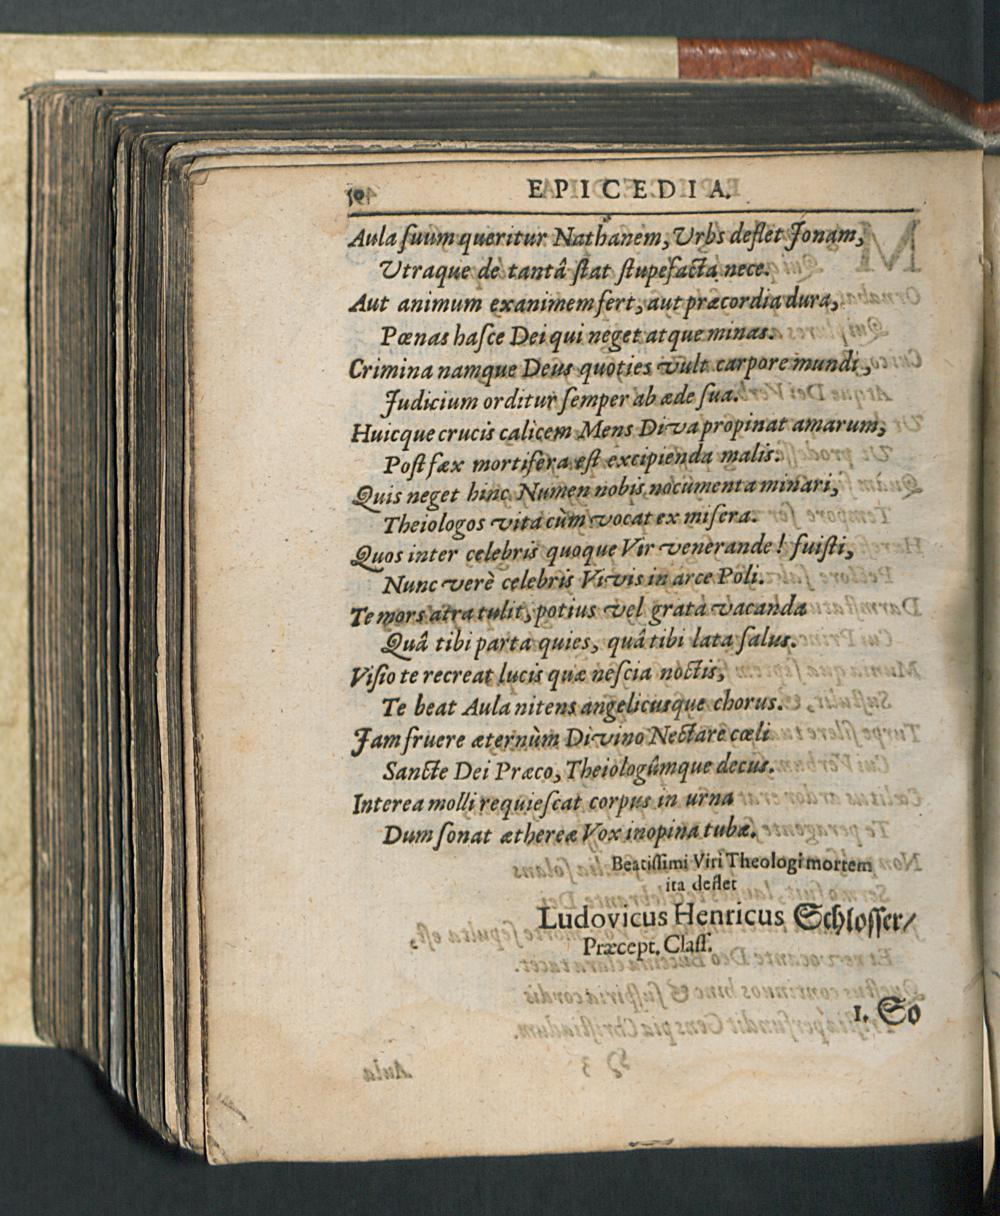 EPICEDIA.
Aula ſuum queritur Nathanem, Urbs deflet Jonam,
Utraque de tantâ ſtat ſtupefacta nece.
Aut animum exanimem fert, aut præcordia dura,
Pœnas haſce Dei qui neget atque minas.
Crimina namque Deus quoties vult carpore mundi,
Judicium orditur ſemper ab æde ſua.
Huicque crucis calicem Mens Diva propinat amarum,
Poſt fæx mortifera eſt excipienda malis.
Quis neget hinc Numen nobis nocumenta minari,
Theiologos vita cùm vocat ex miſera.
Quos inter celebris quoque Vir venerande! fuiſti,
Nunc verè celebris Vivis in arce Poli.
Te mors atra tulit, potius vel grata vacanda
Quâ tibi parta quies, quâ tibi lata ſalus.
Viſio te recreat lucis quæ neſcia noctis,
Te beat Aula nitens angelicusque chorus.
Jam fruere æternùm Divino Nectare cœli
Sancte Dei Præco, Theiologûmque decus.
Interea molli requieſcat corpus in urna
Dum ſonat æthereæ Vox inopina tubæ.
Beatiſſimi Viri Theologi mortem
ita deflet
Ludovicus Henricus Schloſſer/
Præcept. Claſſ.
1. So